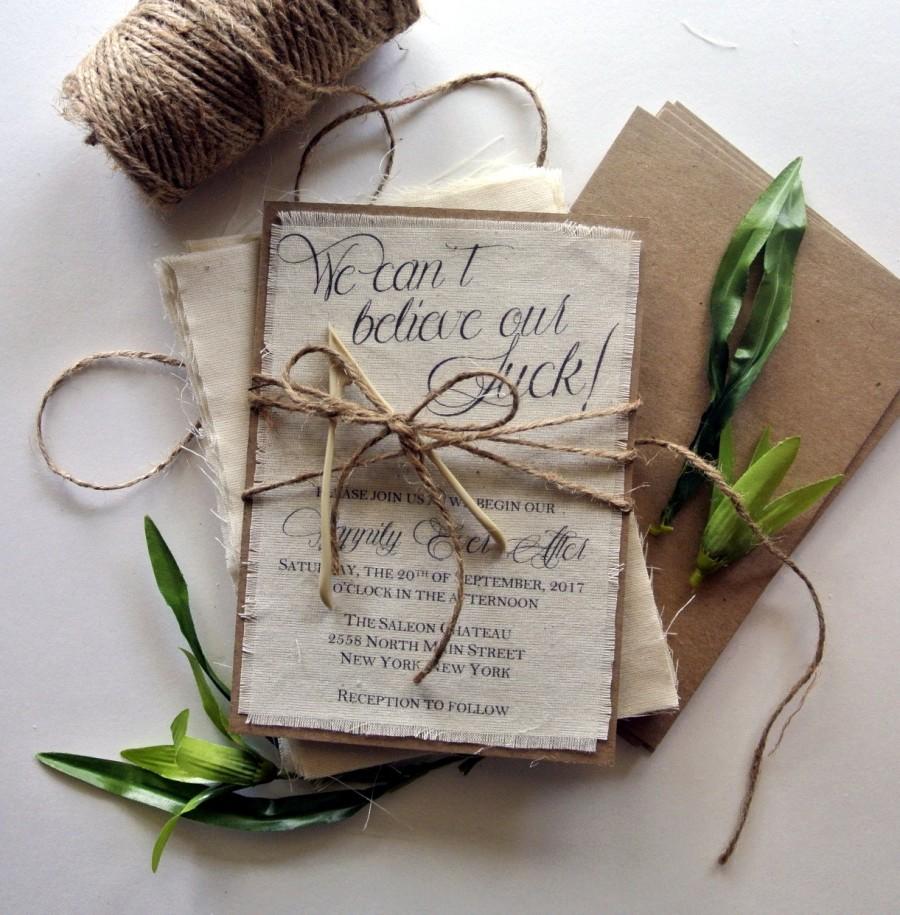 We can't
believe our
luck!
PLEASE JOIN US AS WE BEGIN OUR
Happily Ever After
SATURDAY, THE 20TH OF SEPTEMBER, 2017
O'CLOCK IN THE AFTERNOON
THE SALEON CHATEAU
2558 NORTH MAIN STREET
NEW YORK, NEW YORK
RECEPTION TO FOLLOW